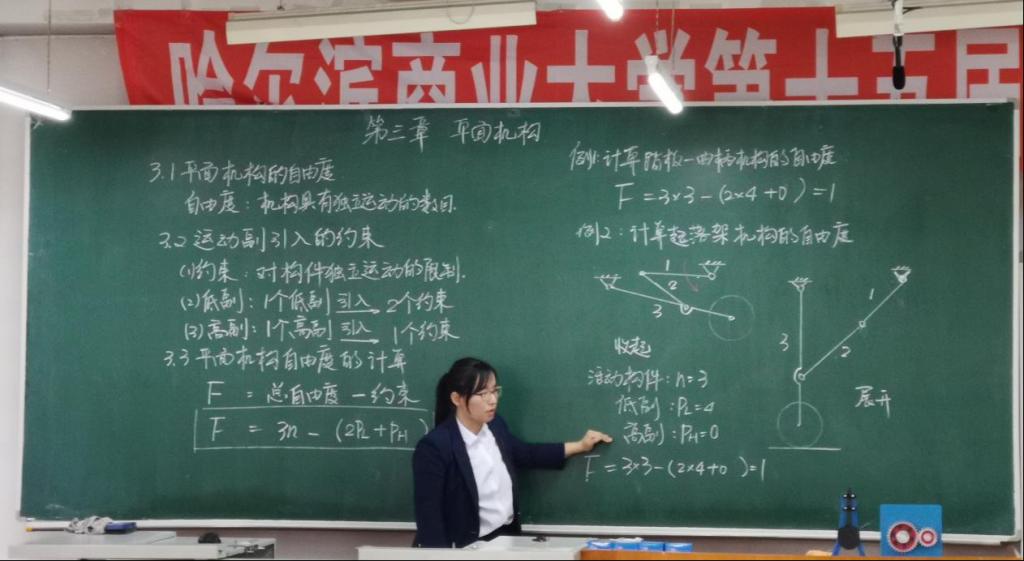 哈尔滨商业大学第十五届
第三章 平面机构
3.1 平面机构的自由度
自由度：机构具有独立运动的数目.
3.2 运动副引入的约束
(1)约束：对构件独立运动的限制.
(2)低副：1个低副 引入 2个约束
(3)高副：1个高副 引入 1个约束
3.3 平面机构自由度的计算
F = 总自由度 - 约束
F = 3n - (2PL + PH)
例1:计算踏板-曲柄机构的自由度
F = 3×3 - (2×4 + 0) = 1
例2：计算起落架机构的自由度
1
2
3
收起
1
2
3
展开
活动构件：n=3
低副：PL=4
高副：PH=0
F = 3×3 - (2×4+0 ) = 1